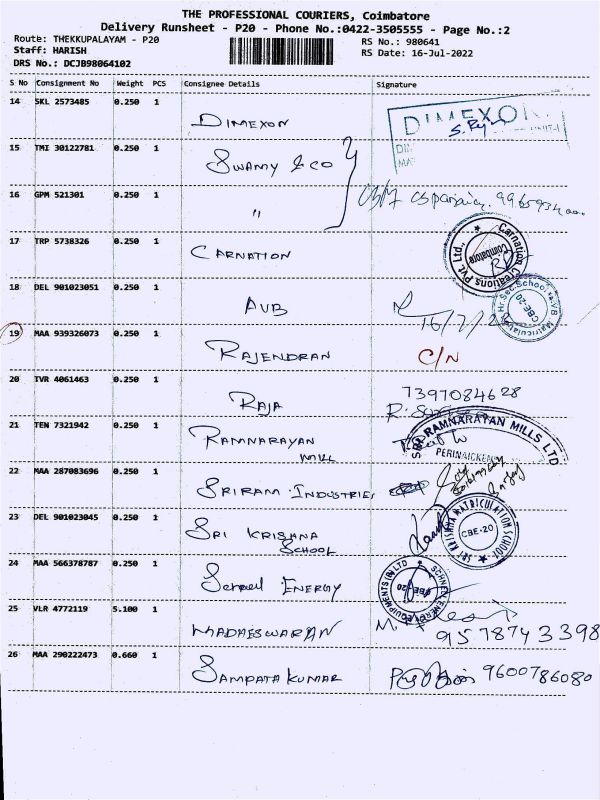 THE PROFESSIONAL COURIERS, Coimbatore
Delivery Runsheet - P20 - Phone No.:0422-3505555 - Page No.:2
Route: THEKKUPALAYAM - P20
RS No.: 980641
Staff: HARISH
RS Date: 16-Jul-2022
DRS No.: DCJB98064102
S No Consignment No Weight PCS Consignee Details Signature
14 SKL 2573485 0.250 1 DIMEXON DIMEXON
15 TMI 30122781 0.250 1 SWAMY & CO
16 GPM 521301 0.250 1 "
17 TRP 5738326 0.250 1 CARNATION Carnation Creations Pvt. Ltd., Coimbatore
18 DEL 901023051 0.250 1 AVB 16/7/2
Hr.Sec.School CBE-20
19 MAA 939326073 0.250 1 RAJENDRAN C/N
20 TVR 4061463 0.250 1 RAJA 7397084628
21 TEN 7321942 0.250 1 RAMNARAYAN MILL SRI RAMNARAYAN MILLS LTD
22 MAA 287083696 0.250 1 SRIRAM INDUSTRIES
23 DEL 901023045 0.250 1 SRI KRISHNA SCHOOL SRI KRISHNA MATRICULATION SCHOOL CBE-20
24 MAA 566378787 0.250 1 Schnell ENERGY SCHNELL ENERGY EQUIPMENTS (P) LTD CBE-20
25 VLR 4772119 5.100 1 MADHESWARAN 9578743398
26 MAA 290222473 0.660 1 SAMPATH KUMAR 9600786080